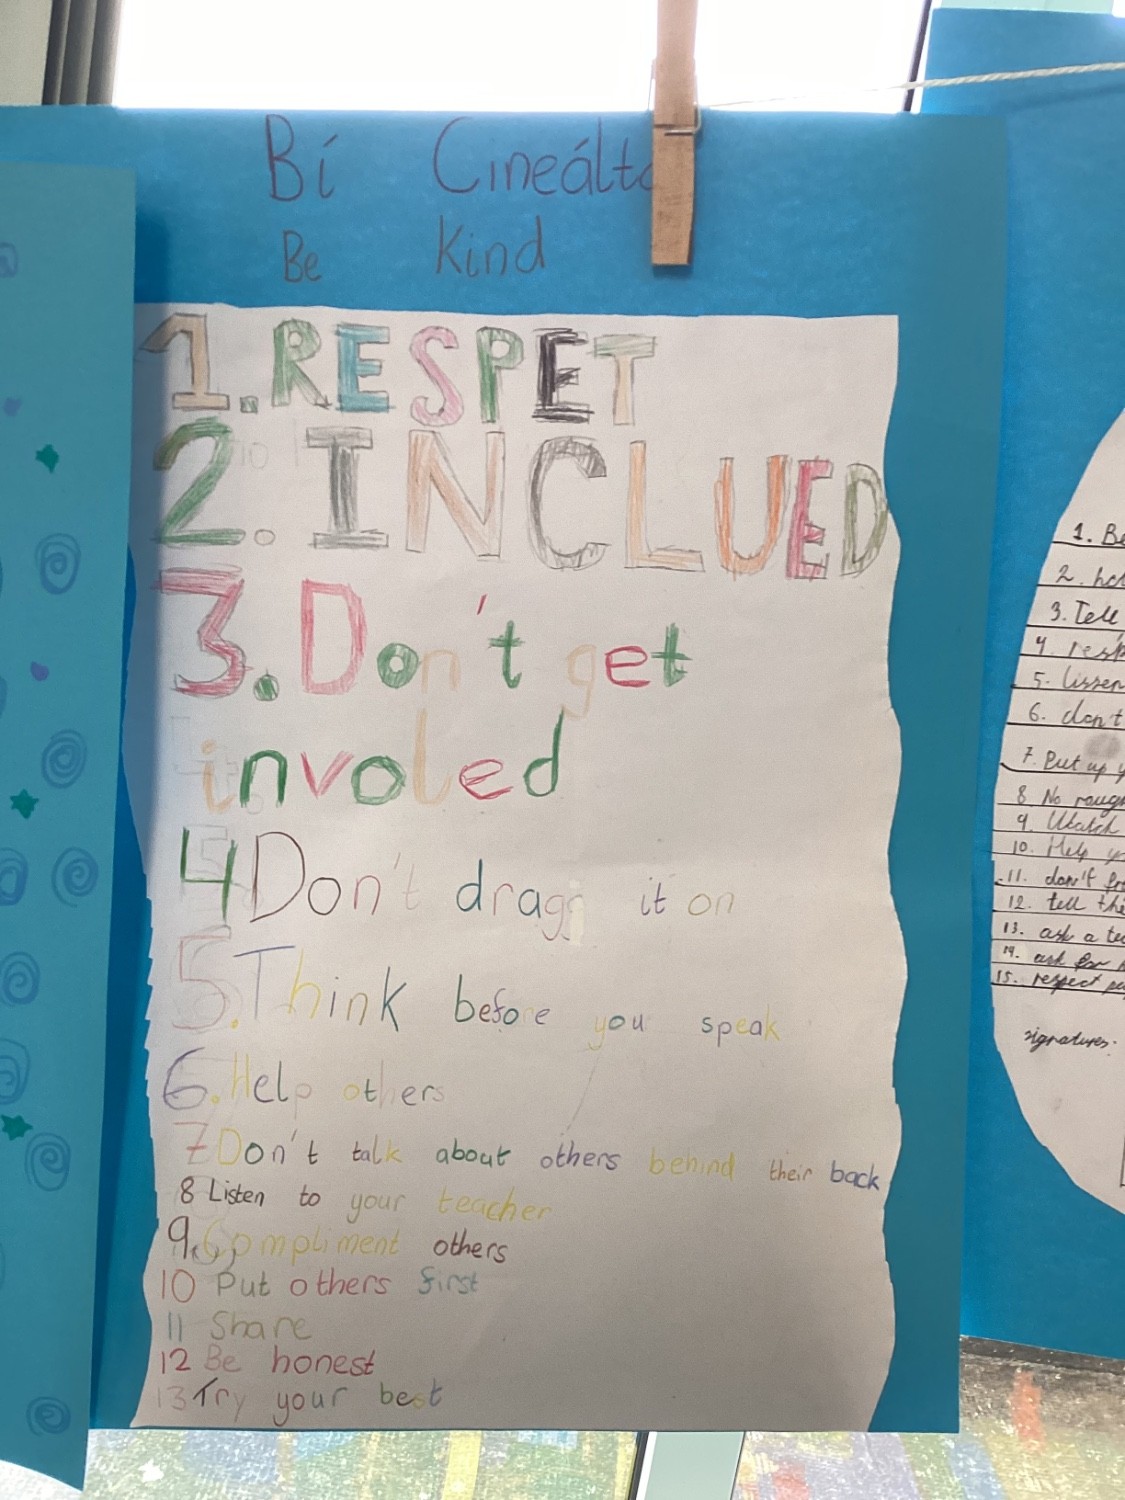 Bí Cineálta
Be Kind
1. RESPET
2. INCLUED
3. Don't get
involed
4 Don't dragg it on
5. Think before you speak
6. Help others
7 Don't talk about others behind their back
8 Listen to your teacher
9. Compliment others
10 Put others first
11 Share
12 Be honest
13 Try your best
1. Be
2.
3. Tell
4.
5. lissen
6. don't
7. Put up
8 No
9. Watch
10. Help
11. don't
12. tell
13. ask a
14. ask for
15. respect
signatures.